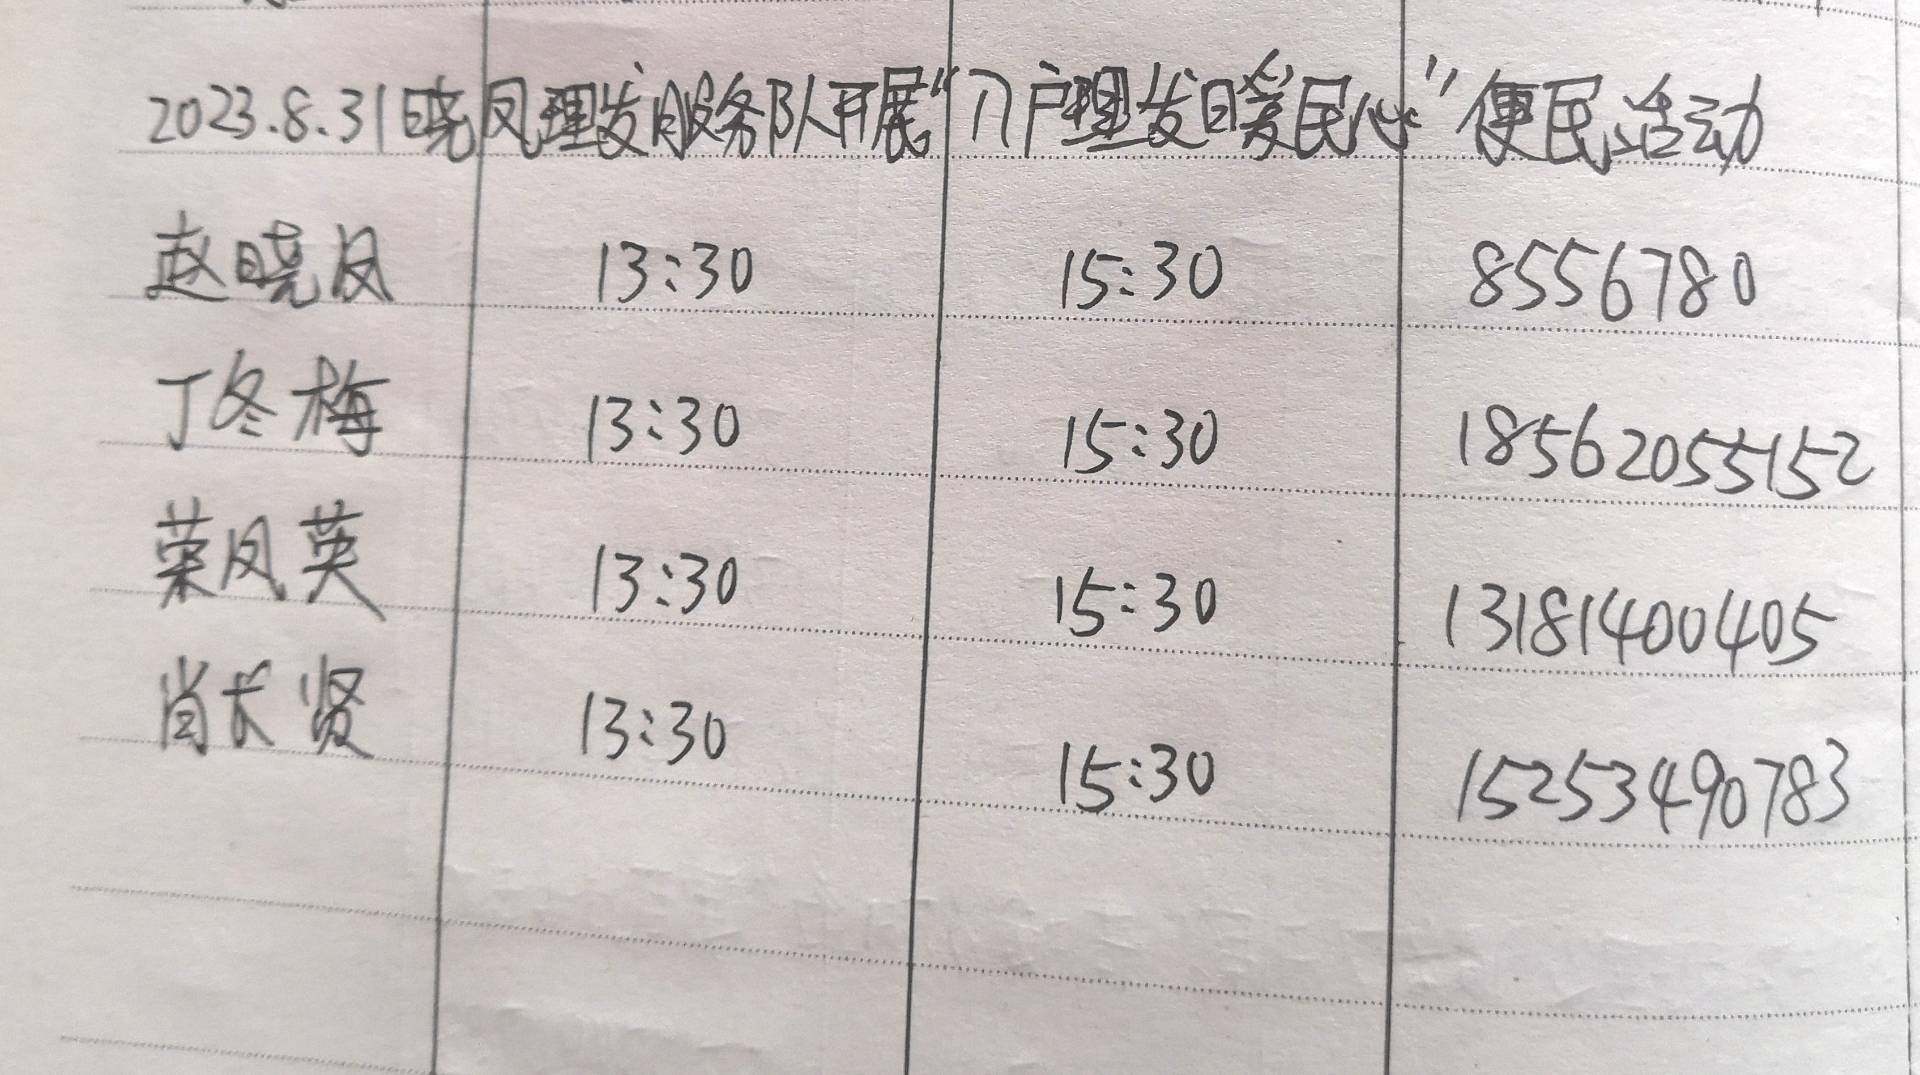 2023.8.31晓凤理发服务队开展“入户理发暖民心”便民活动
赵晓凤 13:30 15:30 8556780
丁冬梅 13:30 15:30 18562055152
荣凤英 13:30 15:30 13181400405
肖长贤 13:30 15:30 15253490783